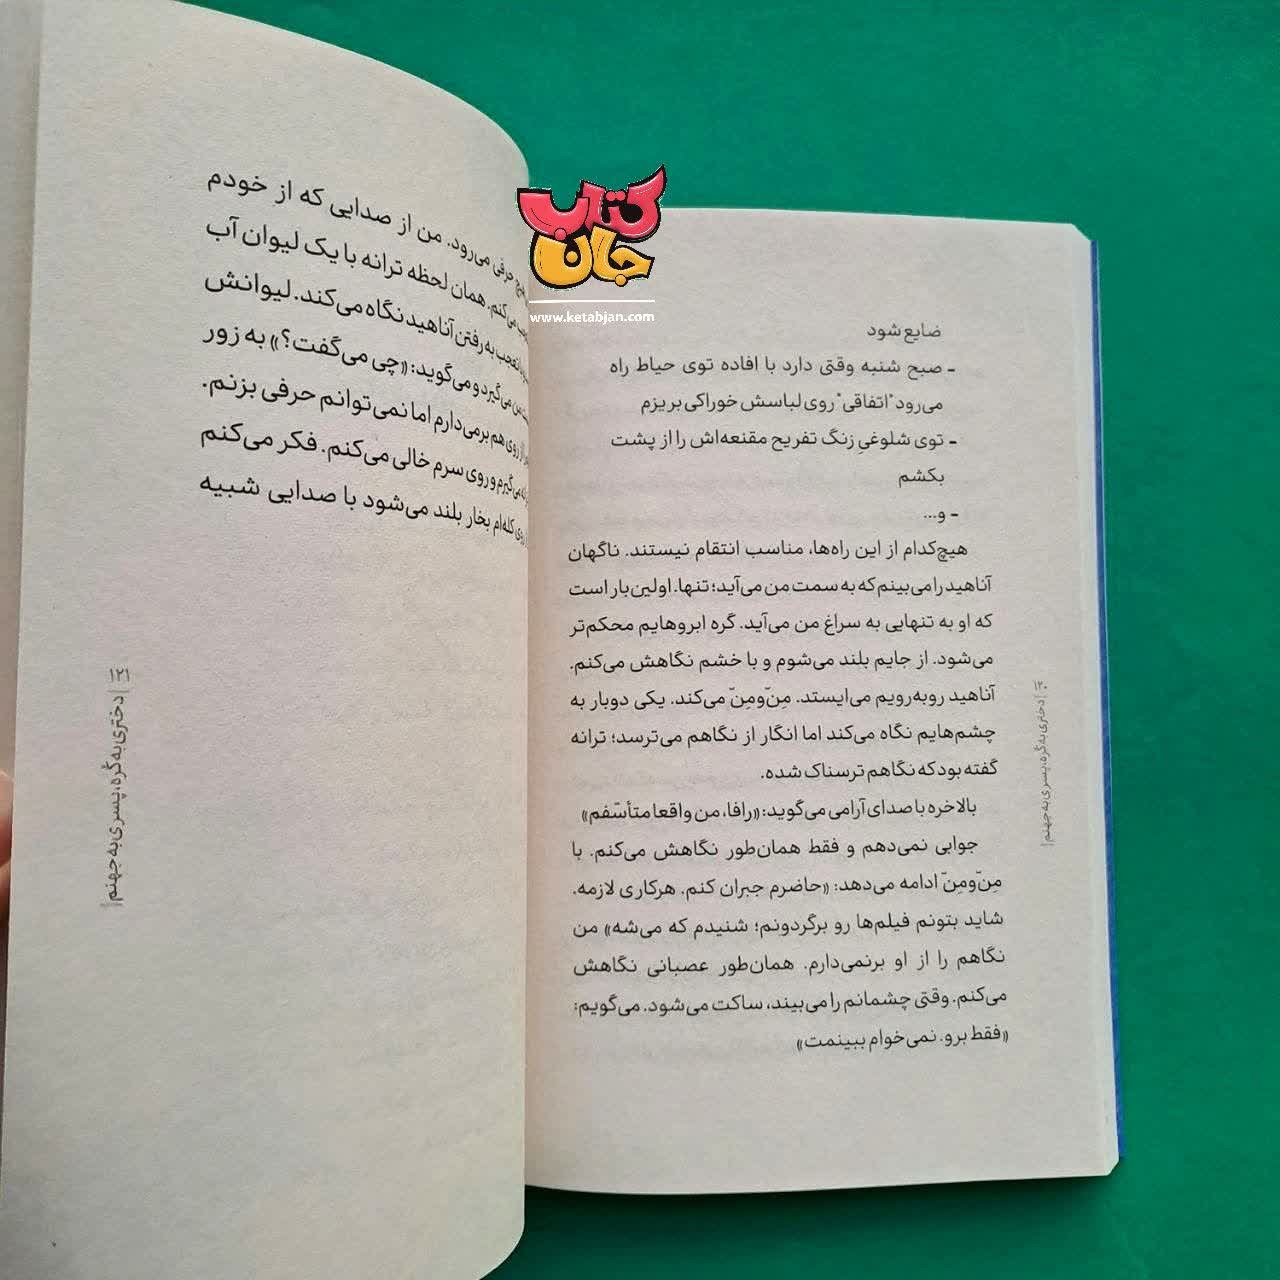 کتاب
جان
www.ketabjan.com
ضایع شود
- صبح شنبه وقتی دارد با افاده توی حیاط راه
می‌رود "اتفاقی" روی لباسش خوراکی بریزم
- توی شلوغیِ زنگ تفریح مقنعه‌اش را از پشت
بکشم
- و...
هیچ‌کدام از این راه‌ها، مناسب انتقام نیستند. ناگهان
آناهید را می‌بینم که به سمت من می‌آید؛ تنها. اولین‌بار است
که او به تنهایی به سراغ من می‌آید. گره ابروهایم محکم‌تر
می‌شود. از جایم بلند می‌شوم و با خشم نگاهش می‌کنم.
آناهید روبه‌رویم می‌ایستد. مِن‌ّومِن‌ّ می‌کند. یکی دوبار به
چشم‌هایم نگاه می‌کند اما انگار از نگاهم می‌ترسد؛ ترانه
گفته بود که نگاهم ترسناک شده.
بالاخره با صدای آرامی می‌گوید: «رافا، من واقعا متأسّفم»
جوابی نمی‌دهم و فقط همان‌طور نگاهش می‌کنم. با
مِن‌ّومِن‌ّ ادامه می‌دهد: «حاضرم جبران کنم. هرکاری لازمه.
شاید بتونم فیلم‌ها رو برگردونم؛ شنیدم که می‌شه» من
نگاهم را از او برنمی‌دارم. همان‌طور عصبانی نگاهش
می‌کنم. وقتی چشمانم را می‌بیند، ساکت می‌شود. می‌گویم:
«فقط برو. نمی‌خوام ببینمت»
۱۲۰ | دختری به گُره، پسری به جهنم |
حرفی می‌رود. من از صدایی که از خودم
می‌کنم. همان لحظه ترانه با یک لیوان آب
با تعجب به رفتن آناهید نگاه می‌کند. لیوانش
می‌گیرد و می‌گوید: «چی می‌گفت؟» به زور
از روی هم برمی‌دارم اما نمی‌توانم حرفی بزنم.
می‌گیرم و روی سرم خالی می‌کنم. فکر می‌کنم
روی کله‌ام بخار بلند می‌شود با صدایی شبیه
۱۲۱ | دختری به گُره، پسری به جهنم |